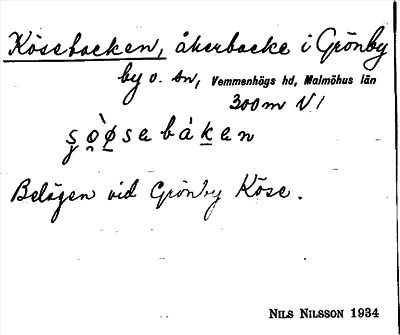 Kösebacken, åkerbacke i Grönby
by o. sn, Vemmenhögs hd, Malmöhus län
300 m V 1
Belägen vid Grönby Köse.
NILS NILSSON 1934